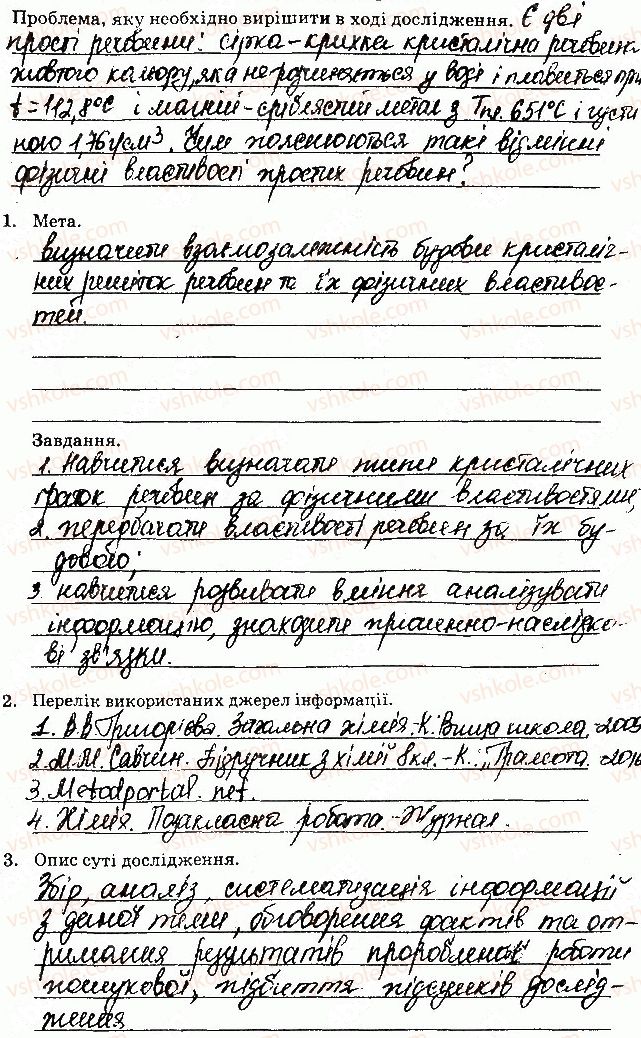 Проблема, яку необхідно вирішити в ході дослідження. Є дві
прості речовини: сірка – крихка кристалічна речовин
жовтого кольору, яка не розчиняється у воді і плавиться при
t = 112,8°C і магній – сріблястий метал з Tпл. 651°C і густи
ною 1,74 г/см³. Чим пояснюються такі відмінні
фізичні властивості простих речовин?
1. Мета.
визначити взаємозалежність будови кристаліч-
них решіток речовин та їх фізичних властивос-
тей.
Завдання.
1. Навчитися визначати типи кристалічних
граток речовин за фізичними властивостями;
2. передбачати властивості речовин за їх бу-
довою;
3. навчитися розвивати вміння аналізувати
інформацію, знаходити причинно-наслідко-
ві зв'язки.
2. Перелік використаних джерел інформації.
1. В.В Григорієва. Загальна хімія – К. Вища школа, 2009
2. М.М. Савчин. Підручник з хімії 8 кл. – К.: "Грамота" – 2016
3. Metodportal.net.
4. Хімія. Позакласна робота. Журнал.
3. Опис суті дослідження.
Збір, аналіз, систематизація інформації
з даної теми, обговорення фактів та от-
римання результатів проробленої роботи
пошукової, підбиття підсумків дослід-
ження